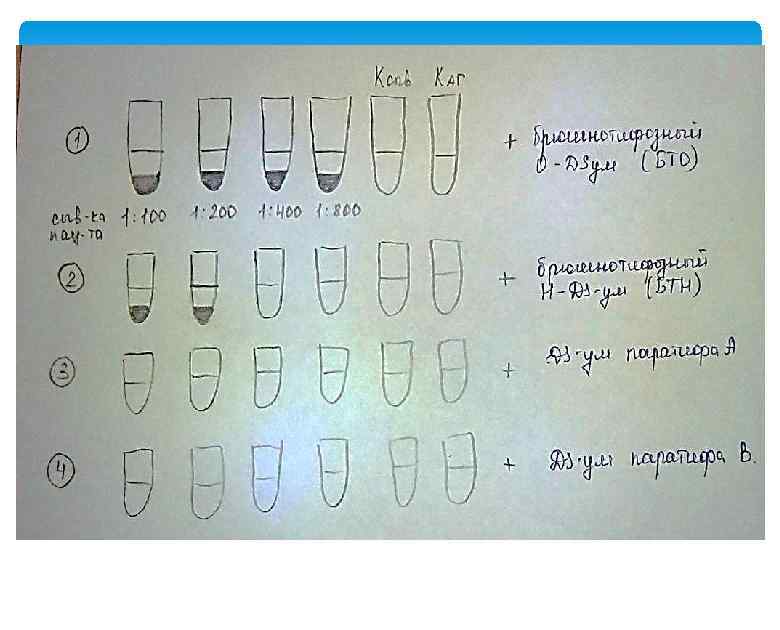 Ксыв Каг
① + брюшнотифозный
О-DSум (БТО)
сыв-ка 1:100 1:200 1:400 1:800
пац-та
② + брюшнотифозный
Н-DS-ум (БТН)
③ + DS-ум паратифа А
④ + DS-ум паратифа В.